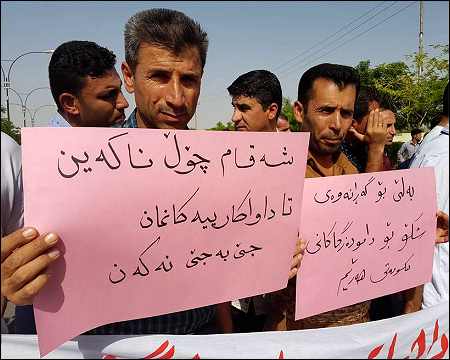 شەقام چۆڵ ناکەین
تا داواکارییەکانمان
جێ بەجێ نەکەن
بەڵێ بۆ گەڕانەوەی
شکۆ بۆ دامودەزگاکانی
حکومەتی هەرێم